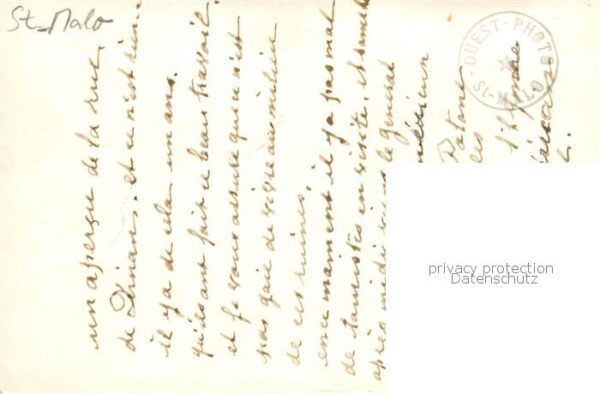 St-Malo
OUEST-PHOTO
St-MALO
un aperçu de la rue
de Dinan. et ce n'est rien
il y a de cela un an.
qu'ils ont fait ce beau travail
et je vous assure que ce n'est
pas gaie de vivre au milieu
de ces ruines.
en ce moment il y a pas mal
de touristes en visite, et
après midi le general
privacy protection
Datenschutz